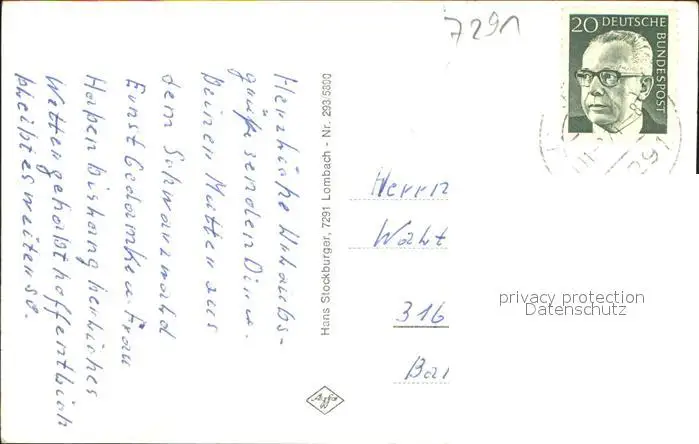 7291
20 DEUTSCHE
BUNDESPOST
291
Herzliche Urlaubs-
grüße senden Dir u.
Deiner Mutter aus
dem Schwarzwald
Ernst Gedamke u. Frau
Haben bishang herliches
Wetter gehabt hoffentlich
bleibt es weiter so.
Hans Stockburger, 7291 Lombach - Nr. 293/5800
Agfa
Herrn
316
privacy protection
Datenschutz